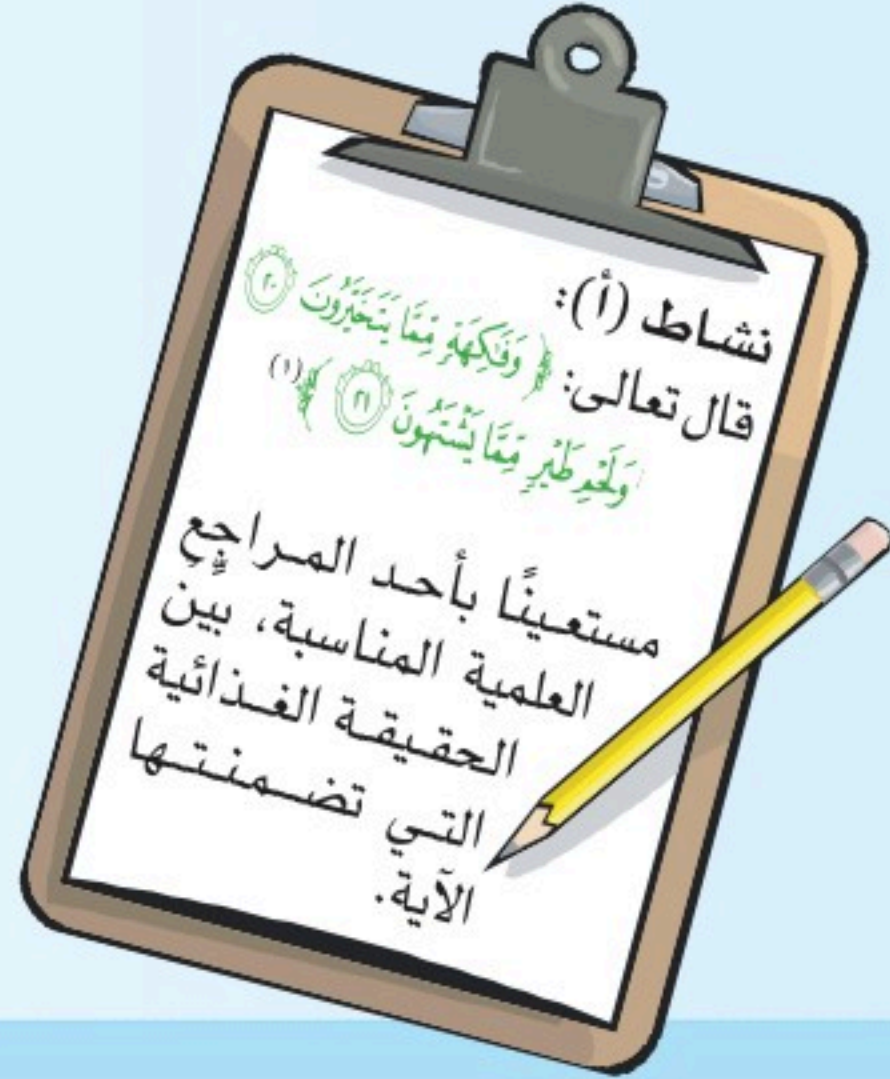 نشاط (أ):
قال تعالى: ﴿ وَفَٰكِهَةٍ مِّمَّا يَتَخَيَّرُونَ ٢٠
وَلَحْمِ طَيْرٍ مِّمَّا يَشْتَهُونَ ٢١ ﴾(١)
مستعينًا بأحد المراجعِ
العلمية المناسبة، بيِّن
الحقيقة الغذائية
التي تضمنتها
الآية.